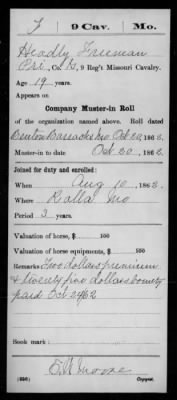 F 9 Cav. Mo.
Headly Freeman
Pvt, Co. G, 9 Reg't Missouri Cavalry.
Age 19 years.
Appears on
Company Muster-in Roll
of the organization named above. Roll dated
Benton Barracks Mo Oct 30, 1862.
Muster-in to date Oct 30, 1862.
Joined for duty and enrolled:
When Aug 10, 1862.
Where Rolla Mo
Period 3 years.
Valuation of horse, $ 100
Valuation of horse equipments, $ 100
Remarks Two dollars premium
& twenty five dollars bounty
paid Oct 24/62
Book mark:
Moore
(356) Copyist.